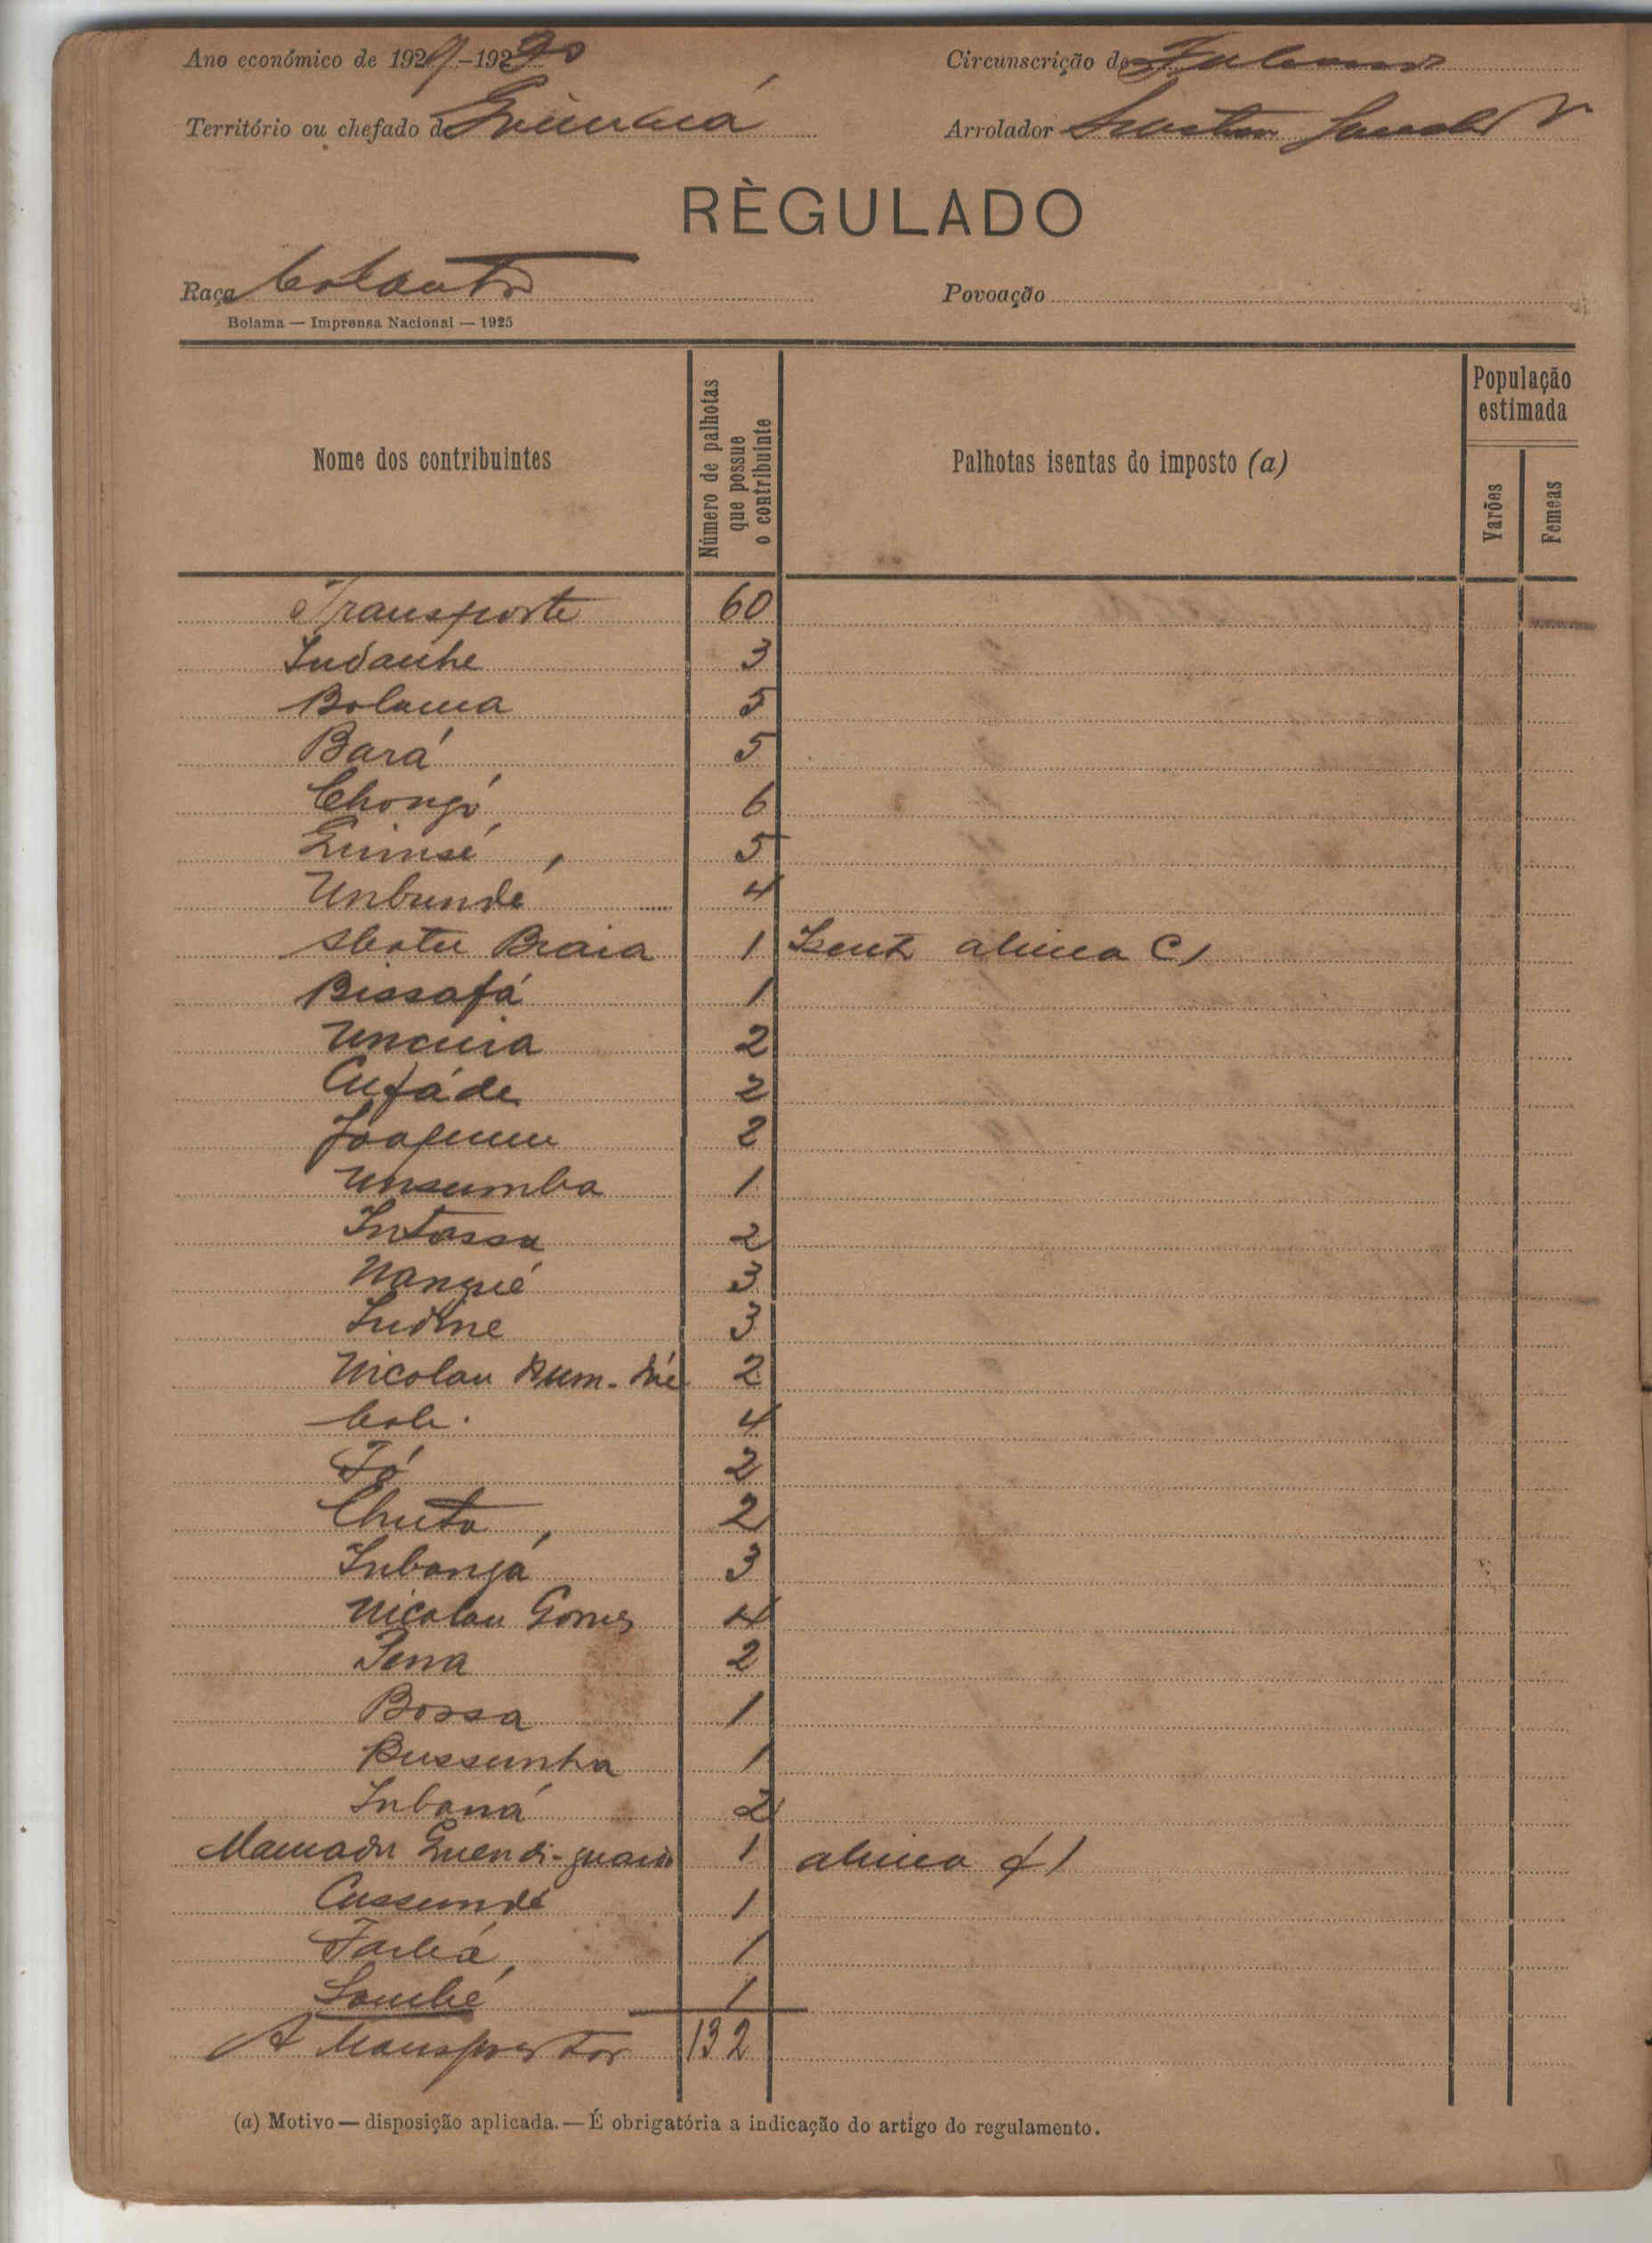 Ano económico de 1929-1930
Circunscrição de
Território ou chefado de
Arrolador
RÈGULADO
Raça
Povoação
Bolama — Imprensa Nacional — 1925
Nome dos contribuintes
Número de palhotas
que possue
o contribuinte
Palhotas isentas do imposto (a)
População
estimada
Varões
Femeas
Transporte 60
Indanhe 3
Bolama 5
Bará 5
Chongó 6
Quinsé 5
Unbundé 4
Braia 1 Isent alinea c)
Bissafá 1
Uncuia 2
Cufáde 2
Joaquim 2
Unsumba 1
Intassa 2
Nangué 3
Indine 3
Nicolau Dum- 2
4
Fó 2
Chuta 2
Inbongá 3
Nicolau Gomes 4
2
Bossa 1
Bussunha 1
Inbaná 2
Mamadu 1 alinea f)
Cussundé 1
1
1
A transportar 132
(a) Motivo — disposição aplicada. — É obrigatória a indicação do artigo do regulamento.